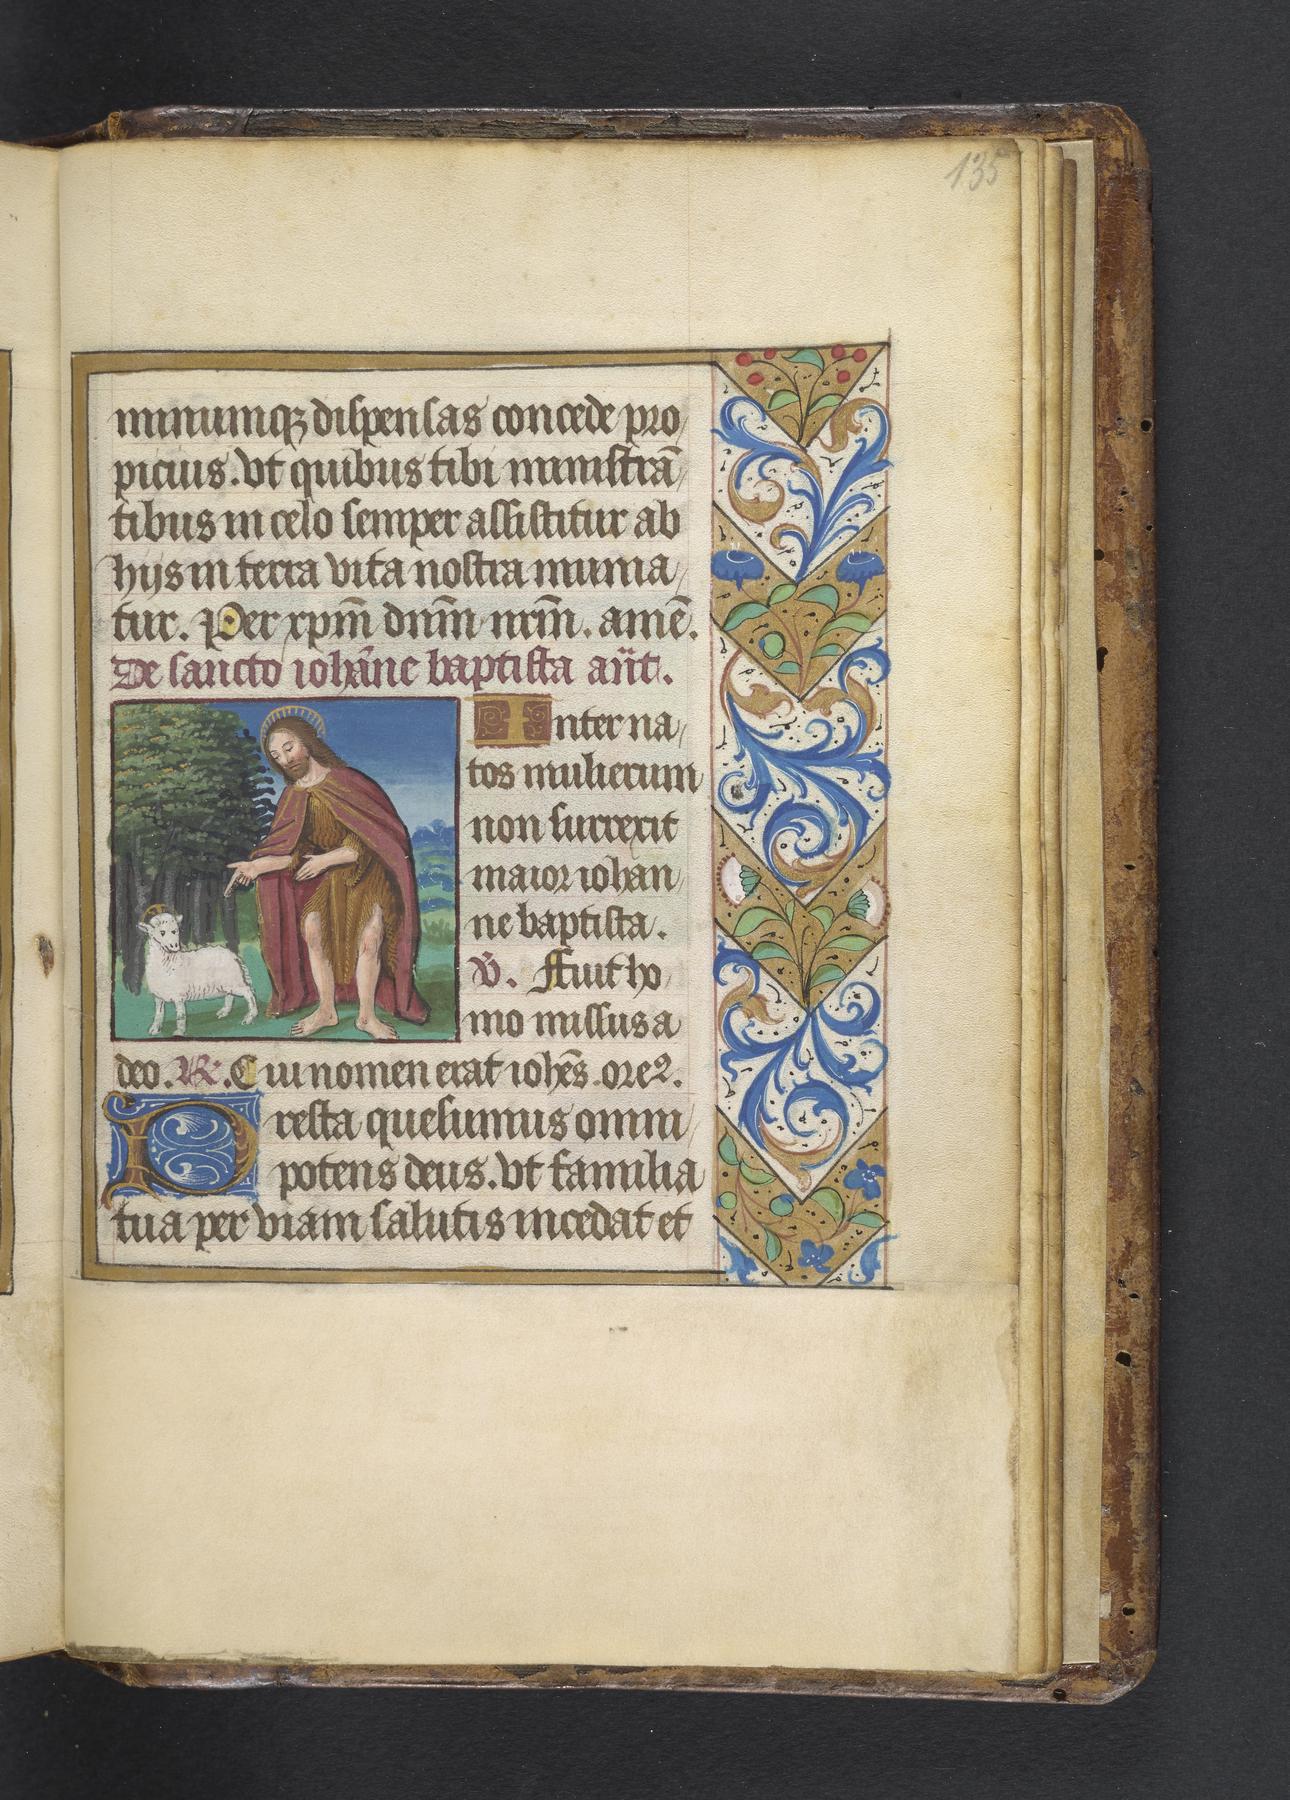 135
minumq dispensas concede pro
picius. Vt quibus tibi ministrā
tibus in celo semper assistitur ab
hijs in terra vita nostra munia
tur. Per xp̄m dn̄m nr̄m. amē.
De sancto ioh̄ane baptista an̄t.
Inter na
tos mulierum
non surrexit
maior iohan
ne baptista.
V̄. Fuit ho
mo missus a
deo. R̄. Cui nomen erat ioh̄es. ore2.
Presta quesumus omni
potens deus. Vt familia
tua per viam salutis incedat et